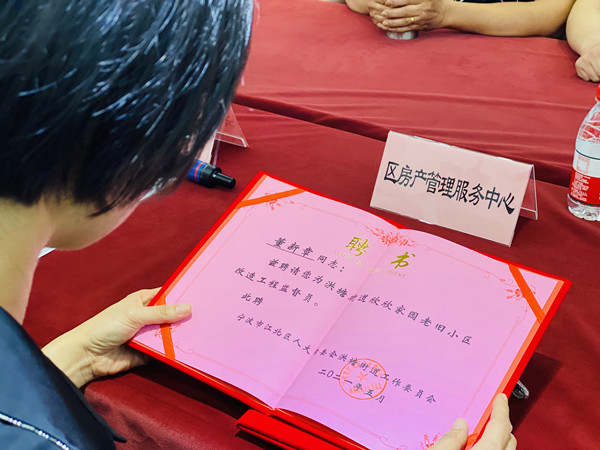 区房产管理服务中心
聘书
董新章同志：
兹聘请您为洪塘街道欣欣家园老旧小区
改造工程监督员。
此聘
宁波市江北区人大常委会洪塘街道工作委员会
二〇二一年五月